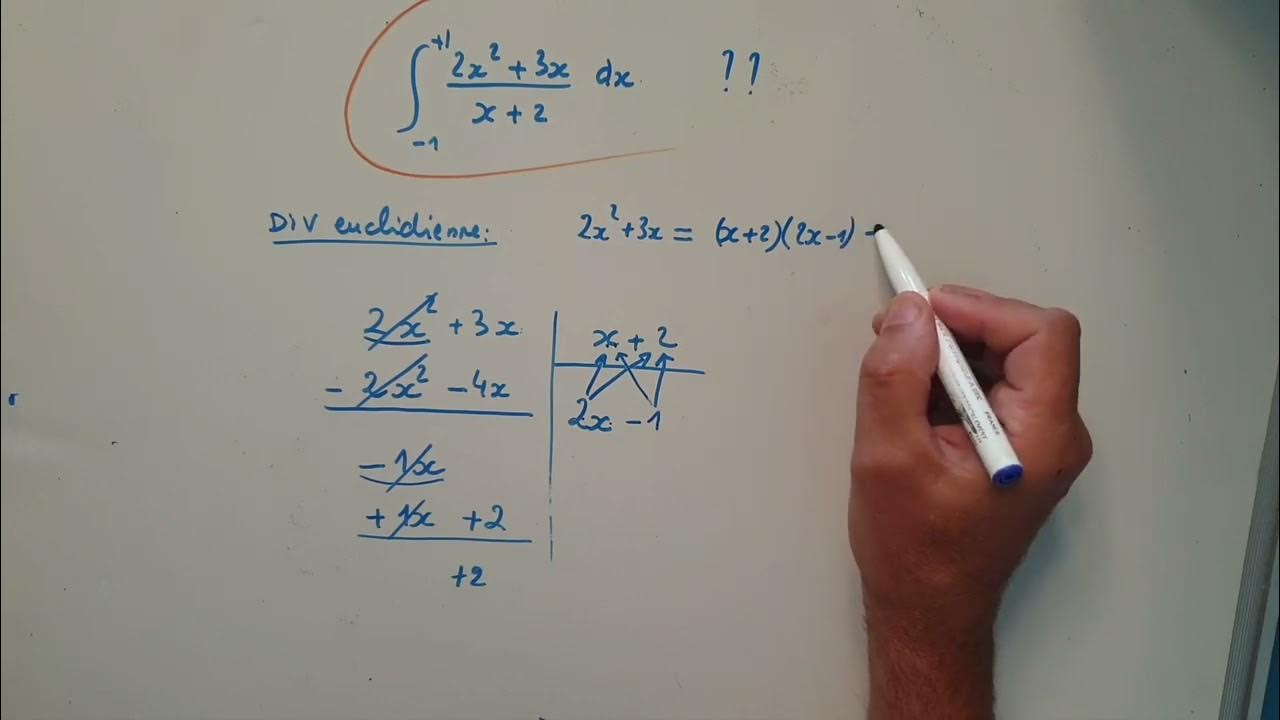 ∫₋₁⁺¹ (2x² + 3x)/(x + 2) dx ??
Div euclidienne: 2x² + 3x = (x+2)(2x-1) -
2x² + 3x | x + 2
- 2x² - 4x | 2x - 1
- 1x
+ 1x + 2
+2